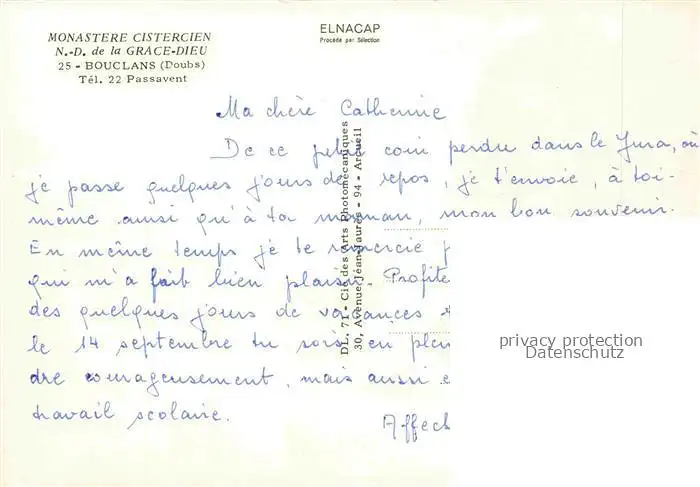 MONASTERE CISTERCIEN
N.-D. de la GRACE-DIEU
25 - BOUCLANS (Doubs)
Tél. 22 Passavent
ELNACAP
Procédé par Sélection
Ma chère Catherine
De ce petit coin perdu dans le Jura, où
je passe quelques jours de repos, je t'envoie, à toi-
même ainsi qu'à ta maman, mon bon souvenir.
En même temps je te remercie
qui m'a fait bien plaisir. Profite
des quelques jours de vacances
le 14 septembre tu sois en plein
dre courageusement, mais aussi
travail scolaire.
Affect
DL. 71 - Cie des Arts Photomécaniques
30, Avenue Jean-Jaurès - 94 - Arcueil
privacy protection
Datenschutz